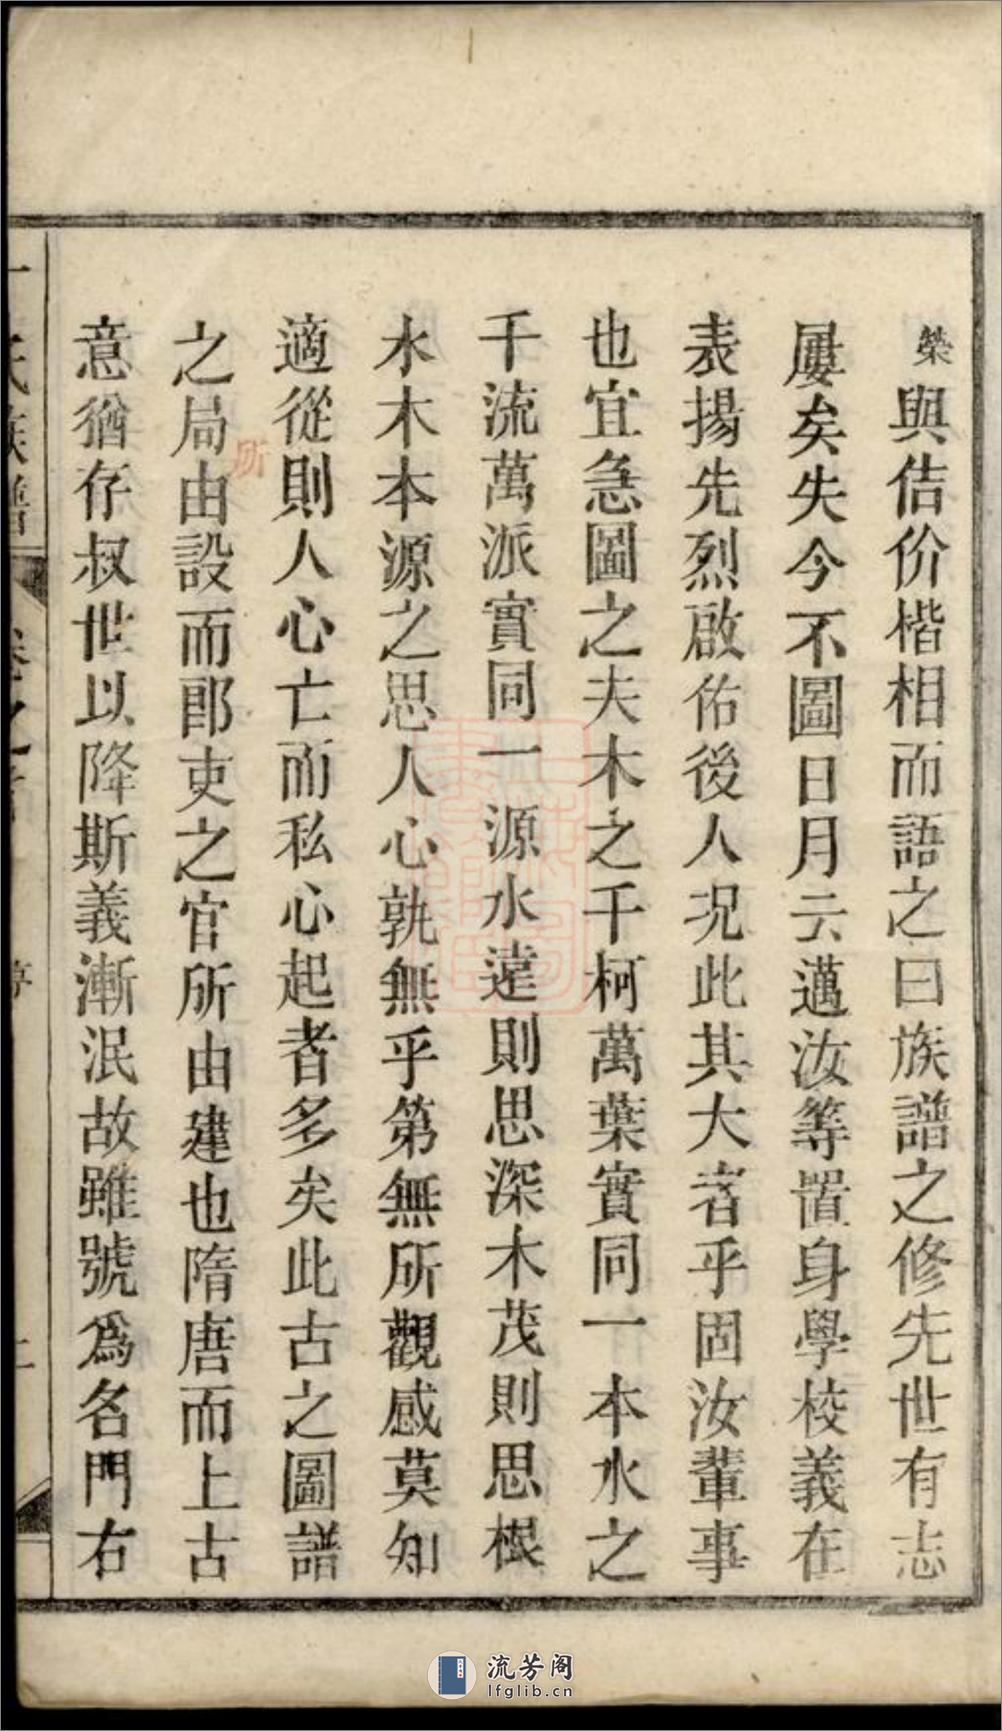 榮與佶价楷相而語之曰族譜之修先世有志
屢矣失今不圖日月云邁汝等置身學校義在
表揚先烈啟佑後人况此其大者乎固汝輩事
也宜急圖之夫木之千柯萬葉實同一本水之
千流萬派實同一源水遠則思深木茂則思根
水木本源之思人心孰無乎第無所觀感莫知
適從則人心亡而私心起者多矣此古之圖譜
之局由設而郎吏之官所由建也隋唐而上古
所
意猶存叔世以降斯義漸泯故雖號爲名門右
氏族譜
流芳阁
lfglib.cn